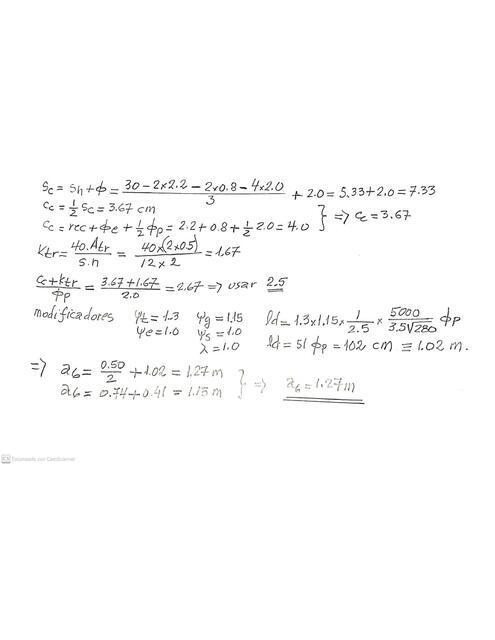 Sc = Sh + ϕ = (30 - 2x2.2 - 2x0.8 - 4x2.0)/3 + 2.0 = 5.33 + 2.0 = 7.33
Cc = 1/2 Sc = 3.67 cm
Cc = rec + ϕe + 1/2 ϕp = 2.2 + 0.8 + 1/2 2.0 = 4.0 } => Cc = 3.67
Ktr = 40.Atr/S.n = 40x(2x0.5)/12x2 = 1.67
Cc + Ktr/ϕp = 3.67 + 1.67/2.0 = 2.67 => usar 2.5
modificadores ψt = 1.3 ψg = 1.15 ld = 1.3x1.15x 1/2.5 x 5000/3.5√280 ϕp
ψe = 1.0 ψs = 1.0
λ = 1.0 ld = 51 ϕp = 102 cm ≡ 1.02 m.
=> a6 = 0.50/2 + 1.02 = 1.27 m
a6 = 0.74 + 0.41 = 1.15 m } => a6 = 1.27 m
CS Escaneado con CamScanner